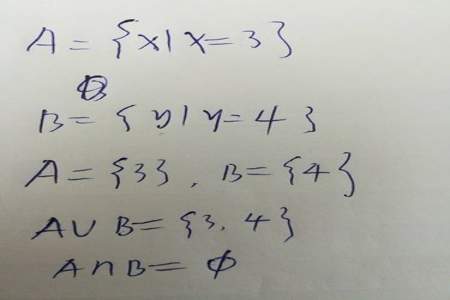 A = {x | x = 3}
B = {y | y = 4}
A = {3}, B = {4}
A ∪ B = {3, 4}
A ∩ B = ϕ